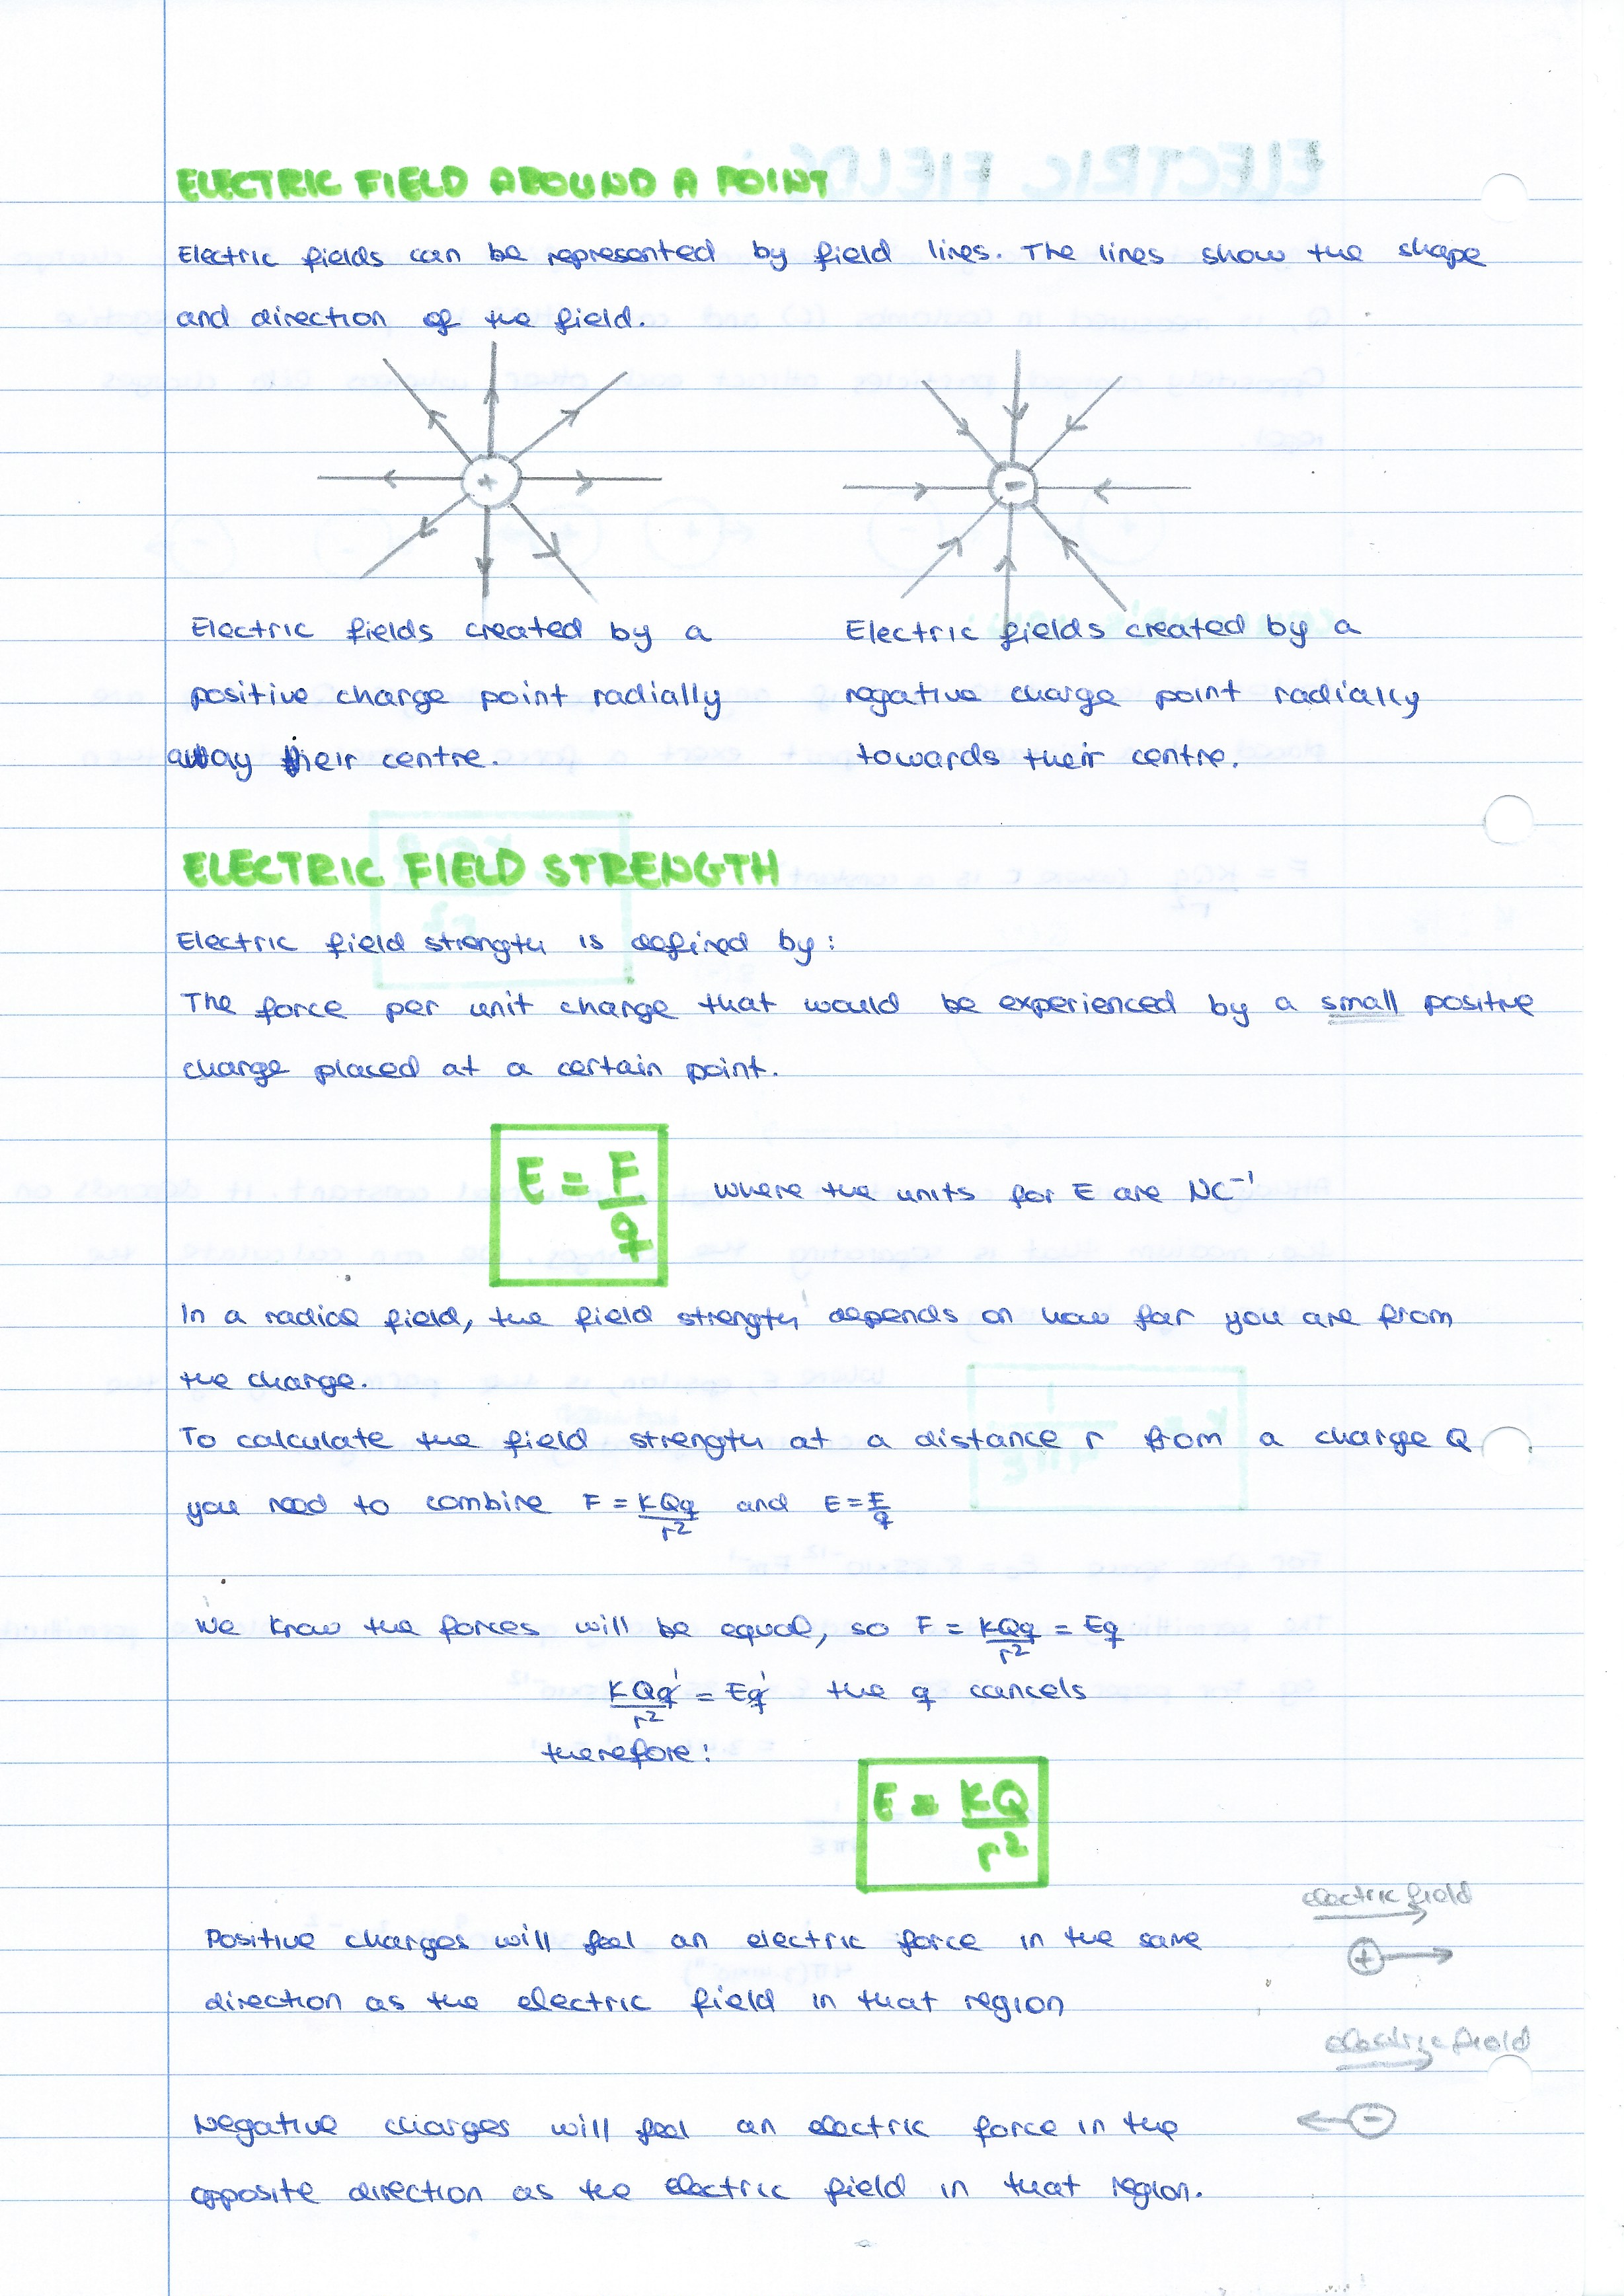 ELECTRIC FIELD AROUND A POINT
Electric fields can be represented by field lines. The lines show the shape
and direction of the field.
+
-
Electric fields created by a
positive charge point radially
away their centre.
Electric fields created by a
negative charge point radially
towards their centre.
ELECTRIC FIELD STRENGTH
Electric field strength is defined by:
The force per unit charge that would be experienced by a small positive
charge placed at a certain point.
E = F/q where the units for E are NC⁻¹
In a radial field, the field strength depends on how far you are from
the charge.
To calculate the field strength at a distance r from a charge Q
you need to combine F = kQq/r² and E = F/q
We know the forces will be equal, so F = kQq/r² = Eq
kQq/r² = Eq the q cancels
therefore:
E = kQ/r²
electric field
+
Positive charges will feel an electric force in the same
direction as the electric field in that region
electric field
-
Negative charges will feel an electric force in the
opposite direction as the electric field in that region.